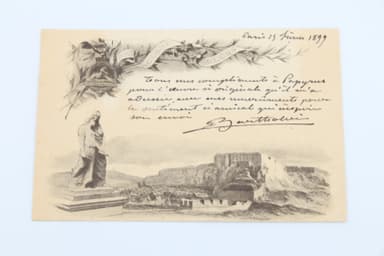 Paris 15 février 1899
Tous mes compliments à Papyrus
pour l'œuvre si originale qu'il m'a
adressée avec mes remerciements pour
le sentiment si amical qui inspire
son envoi
Bartholdi